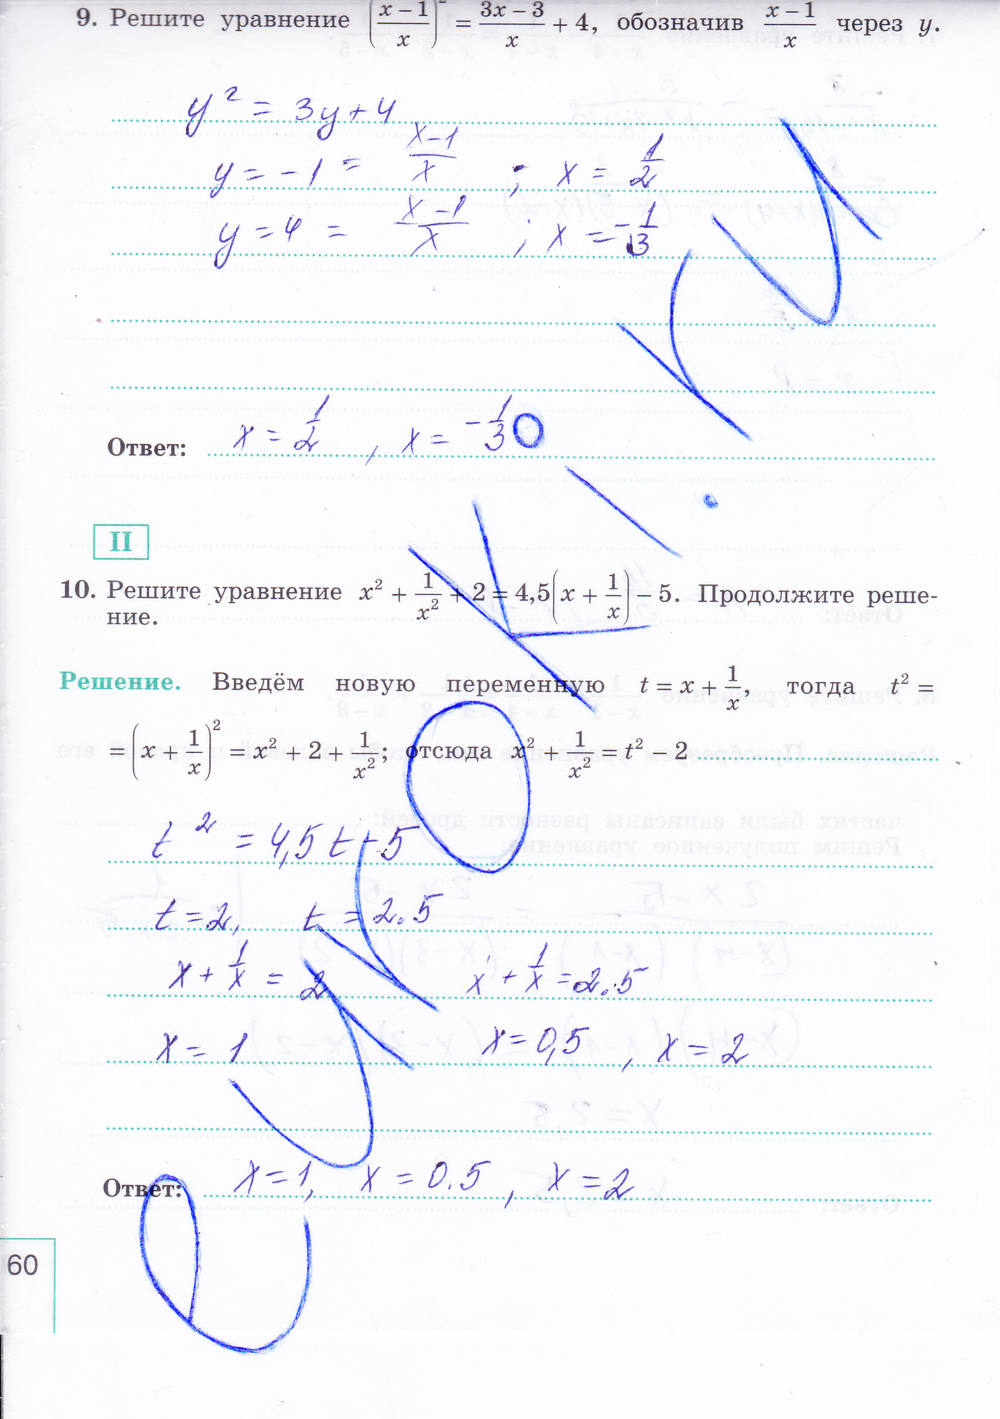 9. Решите уравнение ((x − 1)/x)² = (3x − 3)/x + 4, обозначив (x − 1)/x через y.
y² = 3y + 4
y = −1 = (x−1)/x ; x = 1/2
y = 4 = (x−1)/x ; x = −1/3
Ответ: x = 1/2 , x = −1/3
II
10. Решите уравнение x² + 1/x² + 2 = 4,5(x + 1/x) − 5. Продолжите реше-
ние.
Решение. Введём новую переменную t = x + 1/x, тогда t² =
= (x + 1/x)² = x² + 2 + 1/x²; отсюда x² + 1/x² = t² − 2
t² = 4,5t + 5
t = 2, t = 2.5
x + 1/x = 2 x + 1/x = 2.5
x = 1 x = 0,5 , x = 2
Ответ: x = 1, x = 0.5 , x = 2
60
eurokI.ru